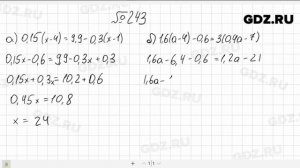 GDZ.RU
№243
а) 0,15(x-4)=9,9-0,3(x-1)
0,15x-0,6=9,9-0,3x+0,3
0,15x+0,3x=10,2+0,6
0,45x=10,8
x = 24
б) 1,6(a-4)-0,6=3(0,4a-7)
1,6a-6,4-0,6=1,2a-21
1,6a-